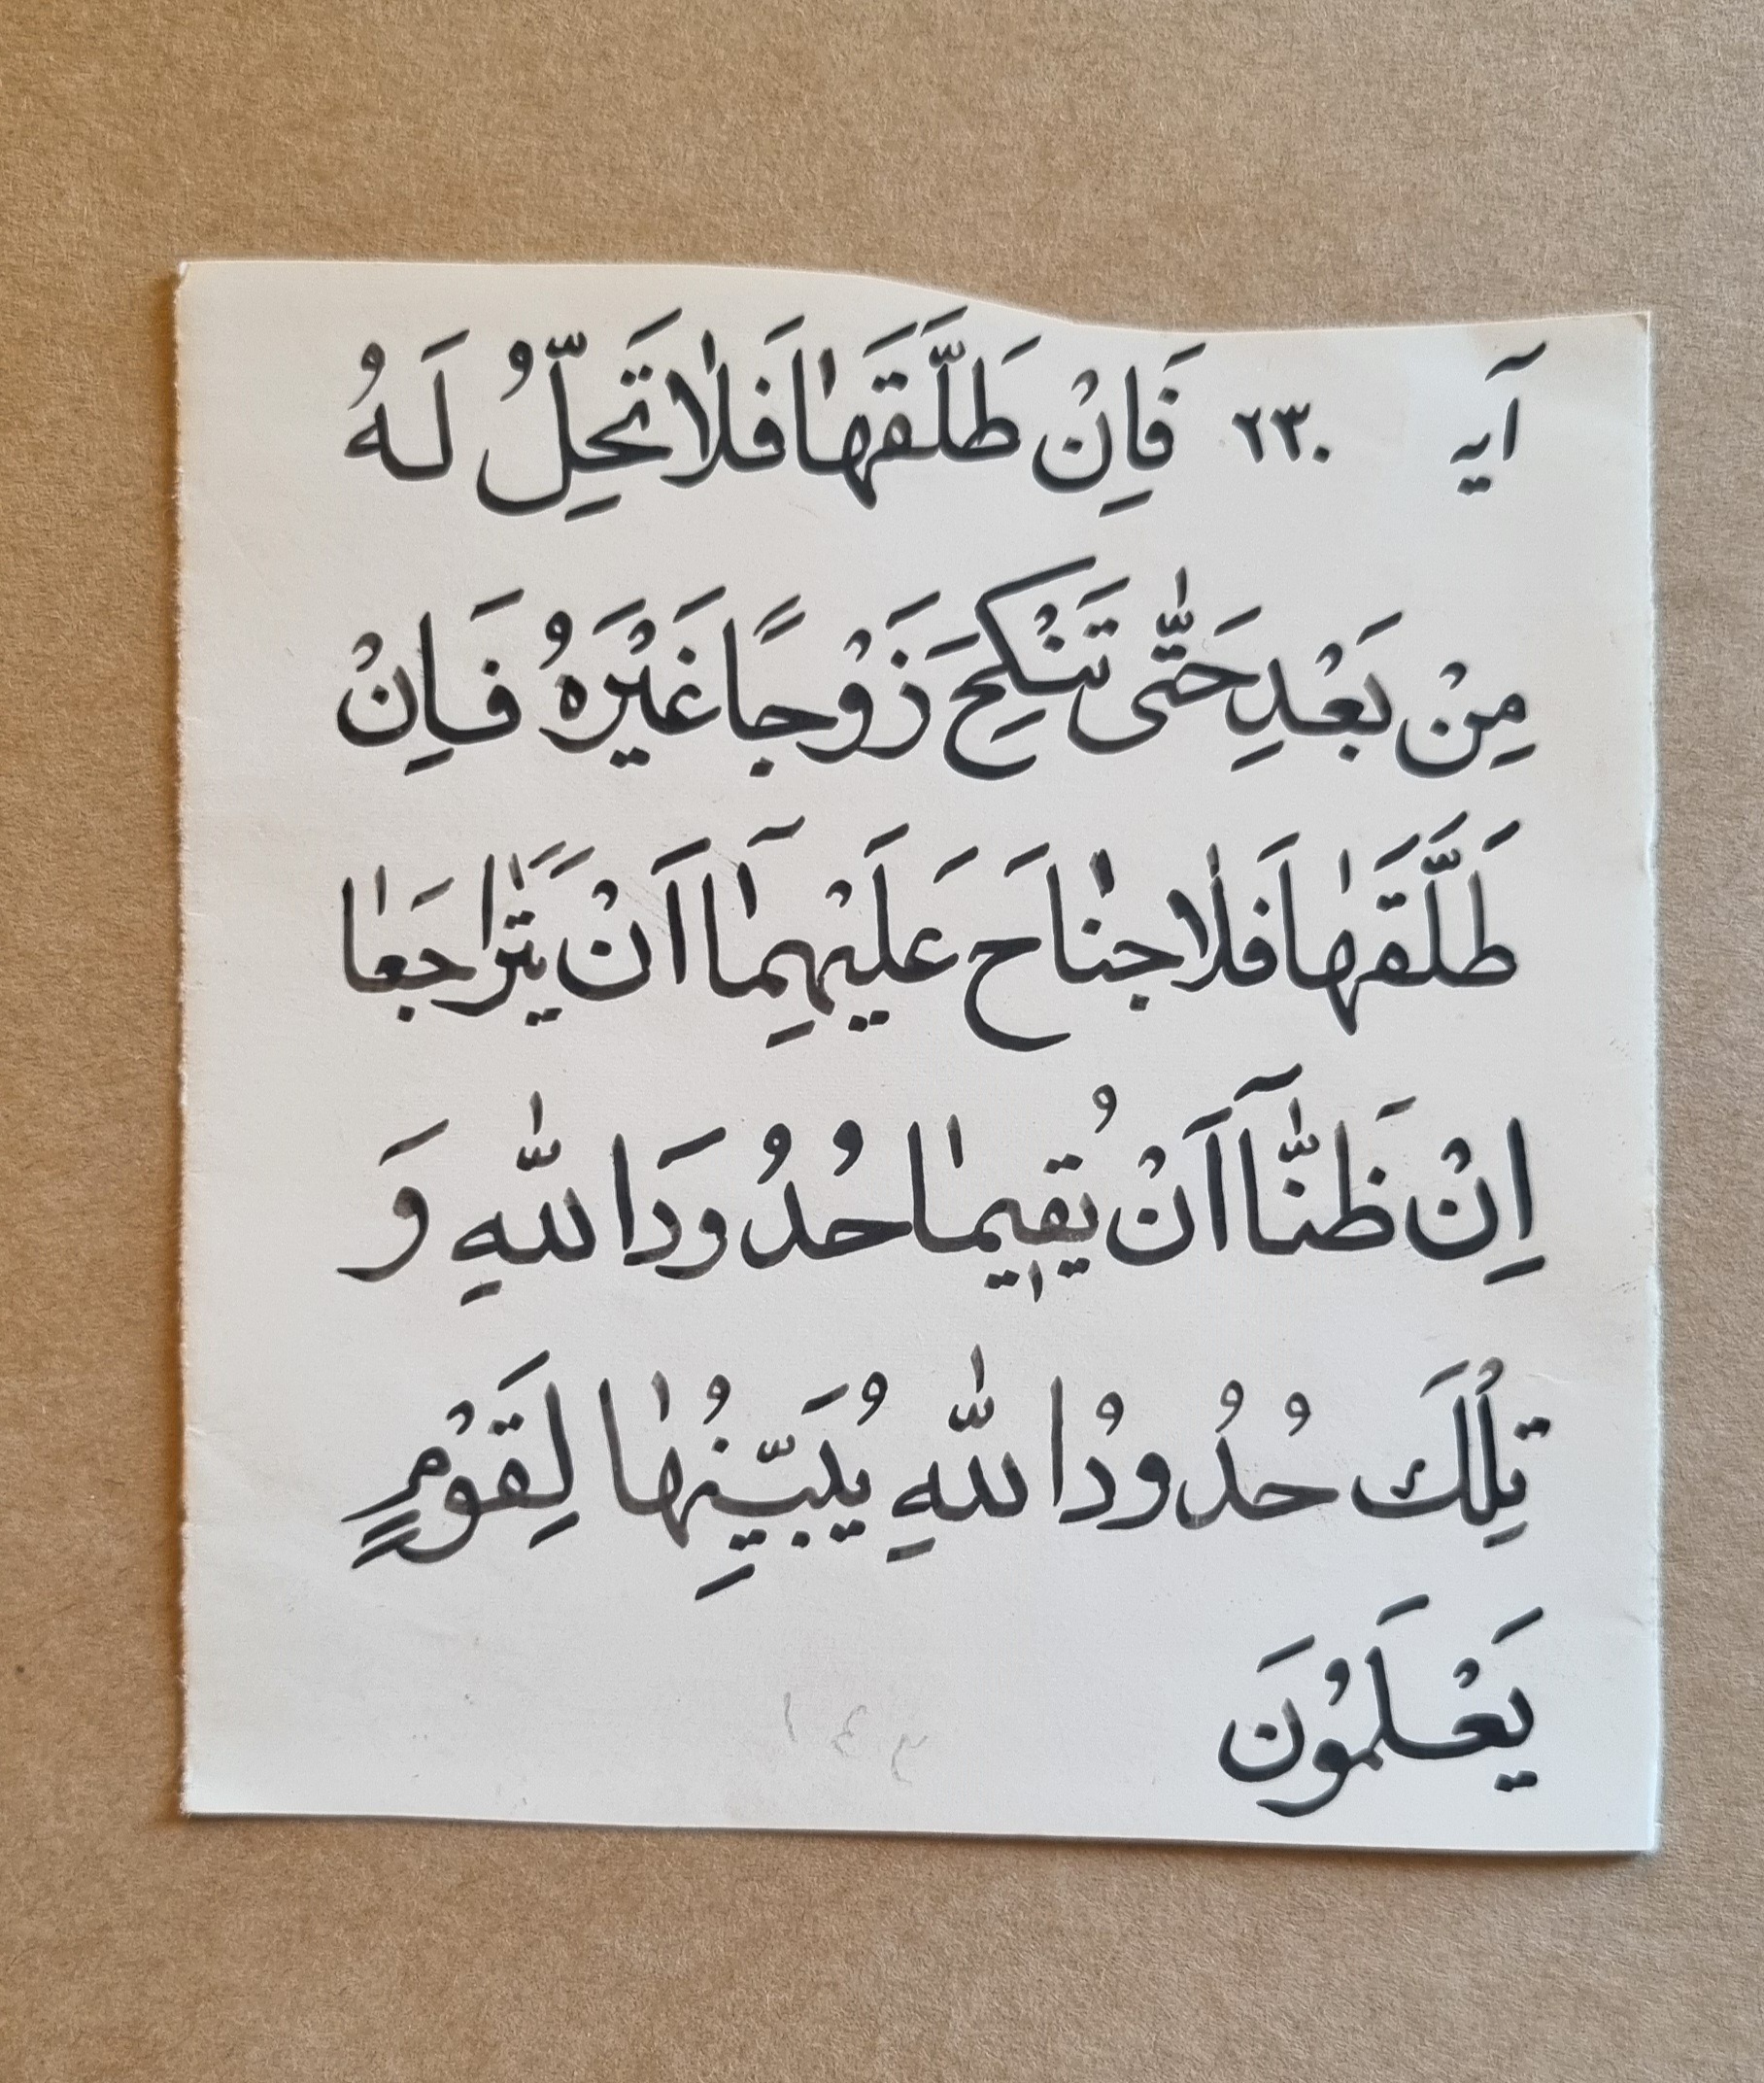 آیه ٢٣٠ فَاِنْ طَلَّقَهٰا فَلٰا تَحِلُّ لَهُ
مِنْ بَعْدِ حَتّٰى تَنْكِحَ زَوْجًا غَيْرَهُ فَاِنْ
طَلَّقَهٰا فَلٰا جنٰاحَ عَلَيْهِمٰآ اَنْ يَتَرٰاجَعٰا
اِنْ ظَنّٰآ اَنْ يُقيمٰا حُدُودَ اللّٰهِ وَ
تِلْكَ حُدُودُ اللّٰهِ يُبَيِّنُهٰا لِقَوْمٍ
يَعْلَمُونَ